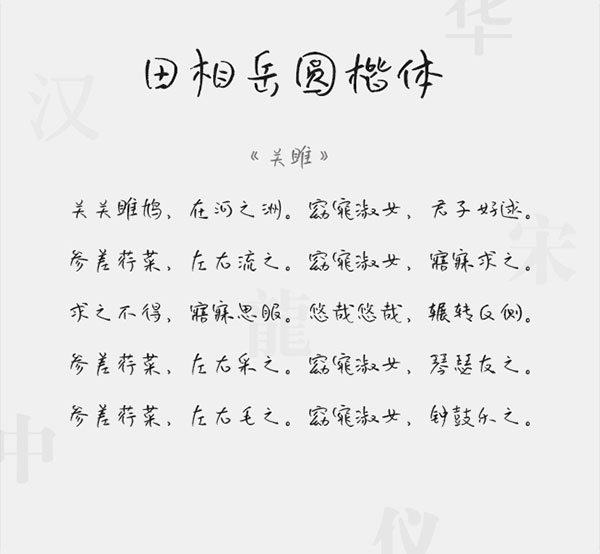 华
汉
田相岳圆楷体
《关雎》
关关雎鸠，在河之洲。窈窕淑女，君子好逑。
宋
参差荇菜，左右流之。窈窕淑女，寤寐求之。
求之不得，寤寐思服。悠哉悠哉，辗转反侧。
龍
参差荇菜，左右采之。窈窕淑女，琴瑟友之。
参差荇菜，左右毛之。窈窕淑女，钟鼓乐之。
中
仪